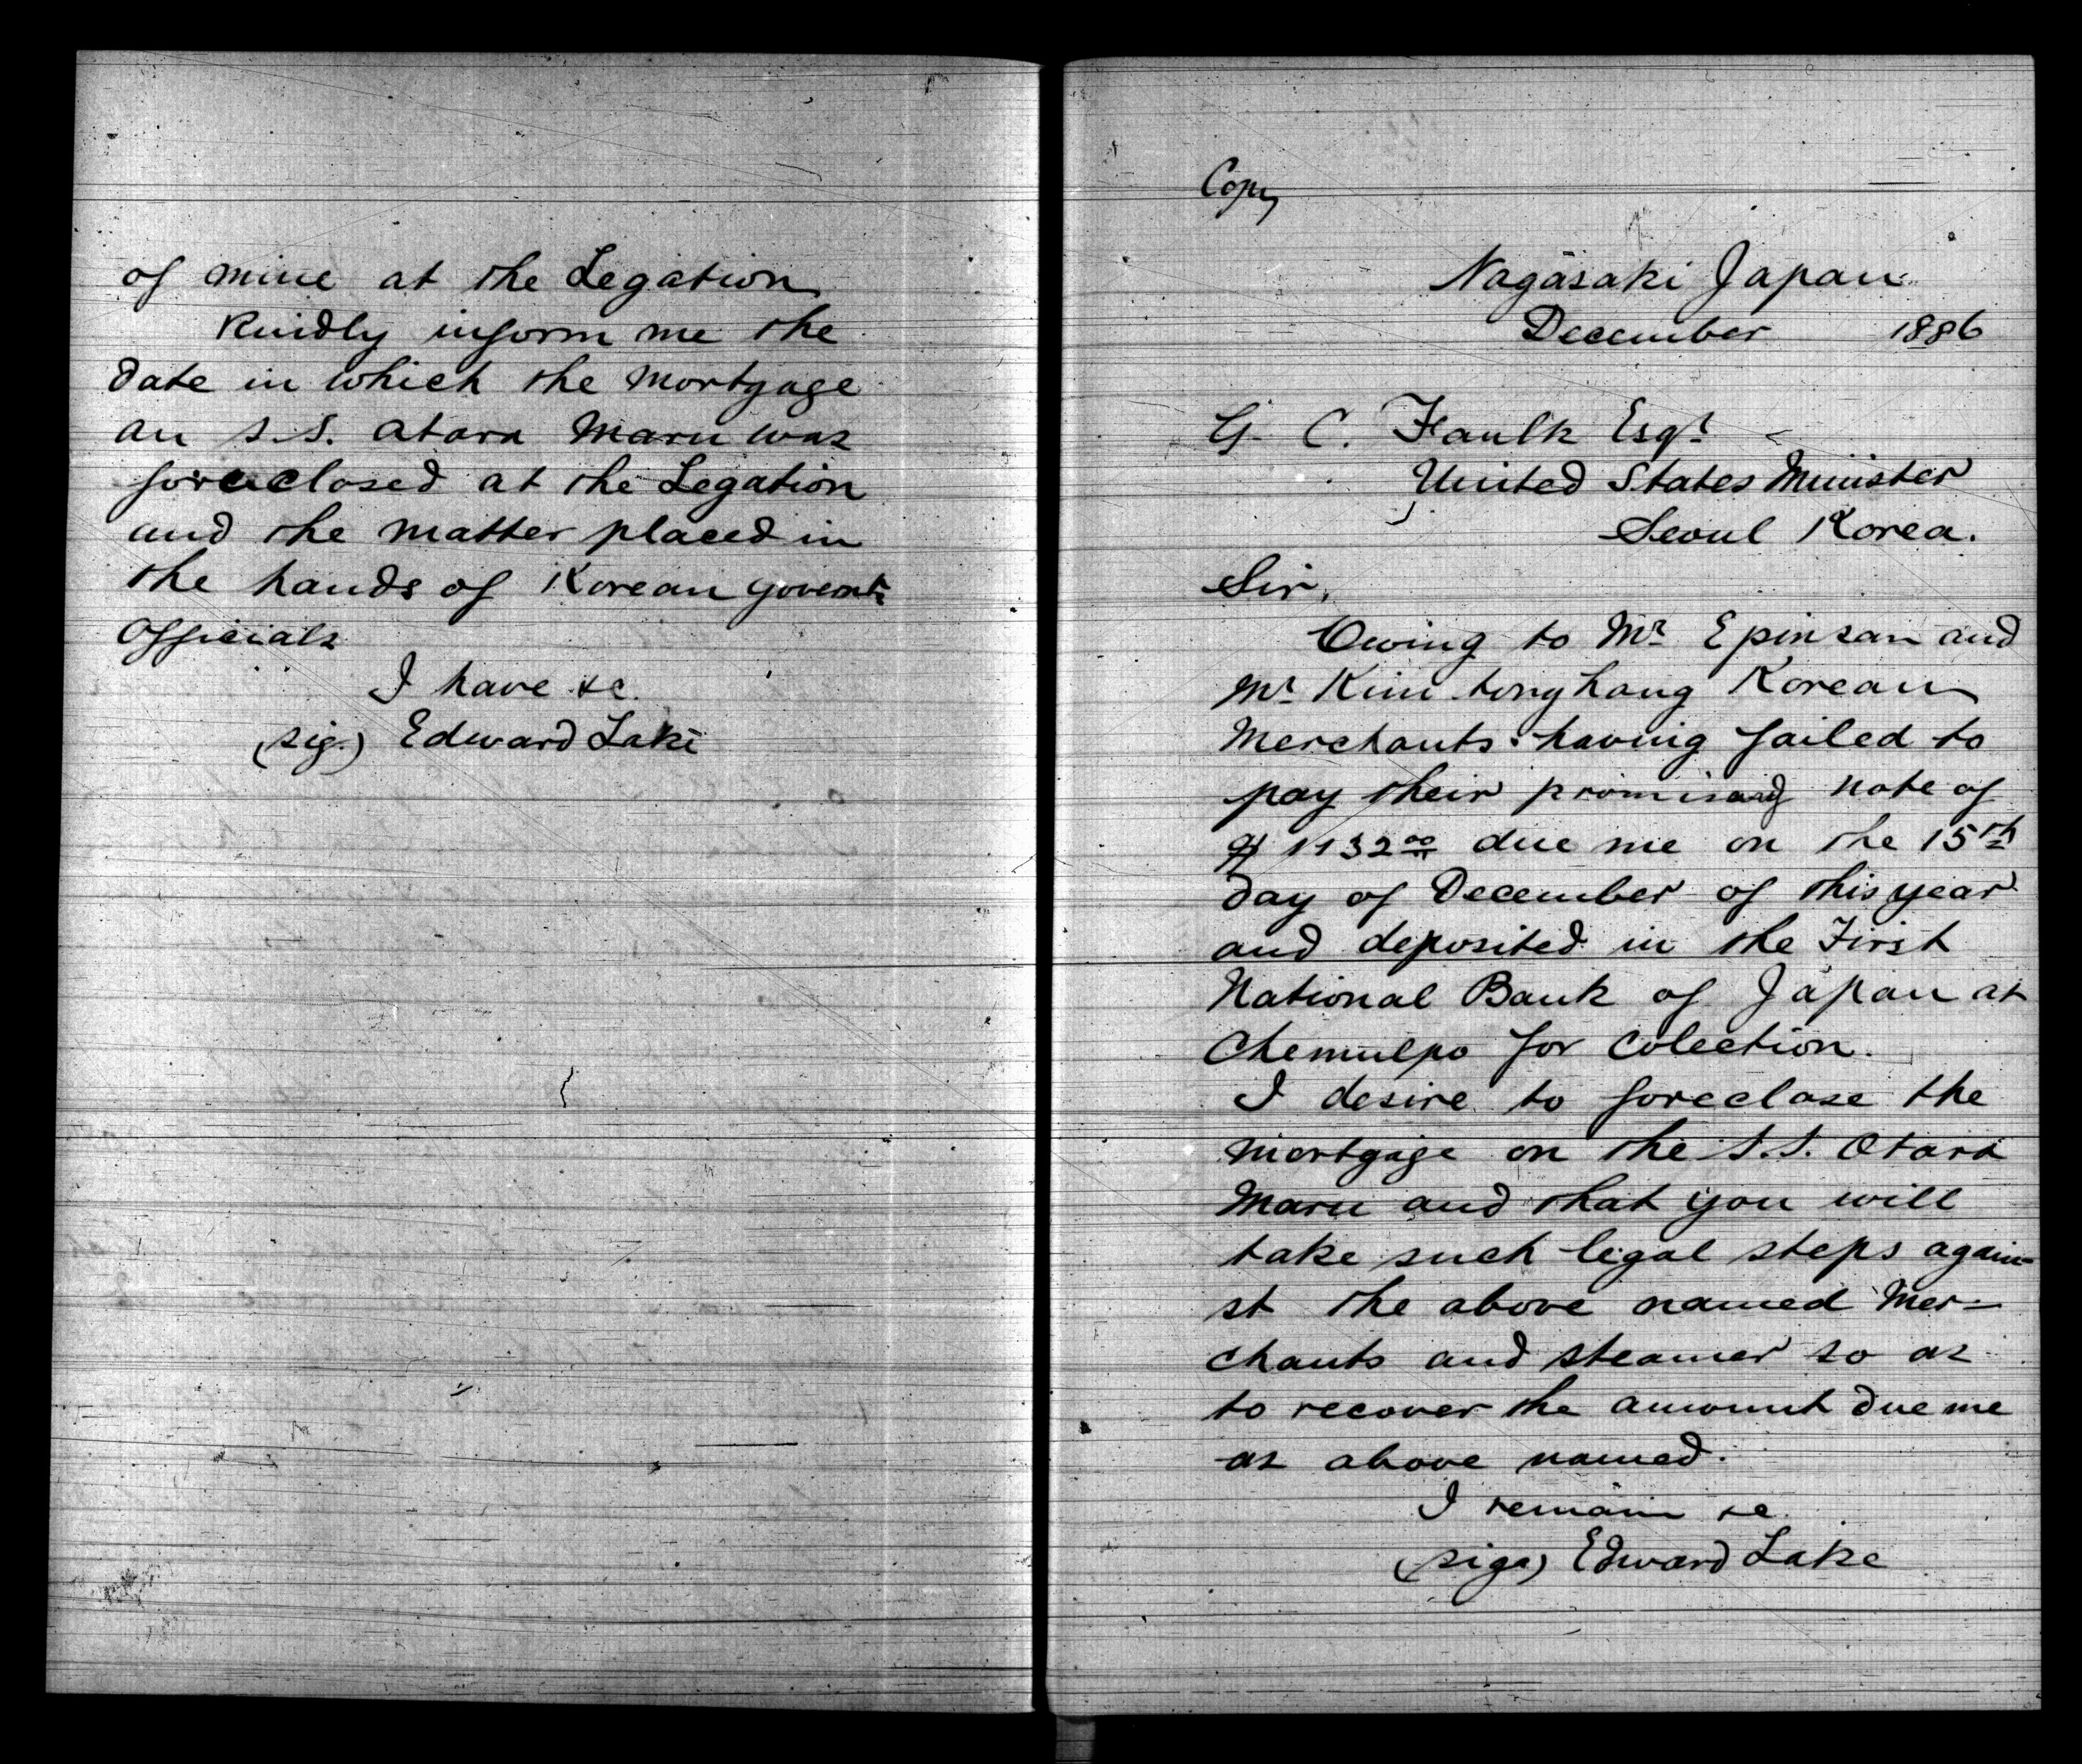 of mine at the Legation
Kindly inform me the
date in which the Mortgage
on S.S. Atara Maru was
foreclosed at the Legation
and the matter placed in
the hands of Korean
Officials
I have &c.
(sig.) Edward Lake
Copy
Nagasaki Japan
December 1886
G. C. Faulk Esqr
United States Minister
Seoul Korea.
Sir,
Owing to Mr Epinsan and
Mr Kim Korean
Merchants having failed to
pay their note of
due me on the 15th
day of December of this year
and deposited in the First
National Bank of Japan at
Chemulpo for Colection.
I desire to foreclose the
mortgage on the S.S. Otara
Maru and that you will
take such legal steps again-
st the above named Mer-
chants and steamer so as
to recover the amount due me
as above named.
I remain &c.
(sigs) Edward Lake